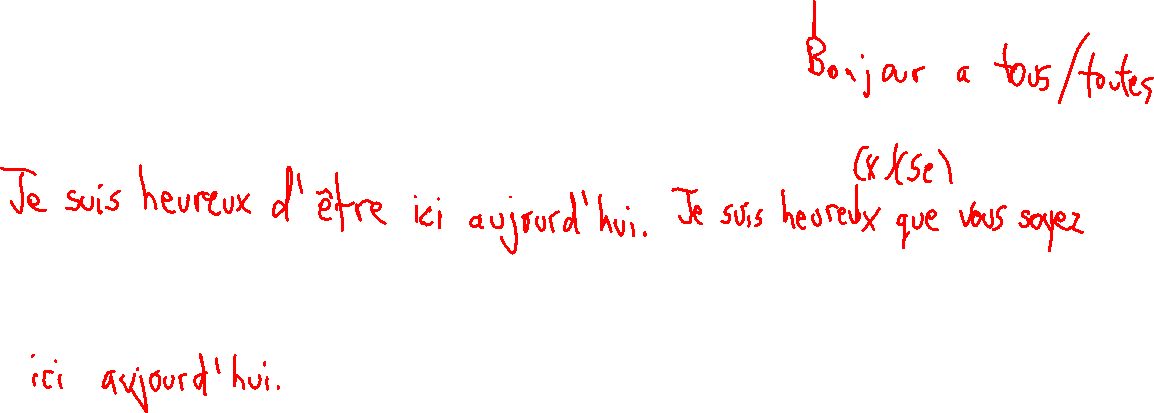 Bonjour a tous/toutes
(x)(se)
Je suis heureux d'être ici aujourd'hui. Je suis heureux que vous soyez
ici aujourd'hui.